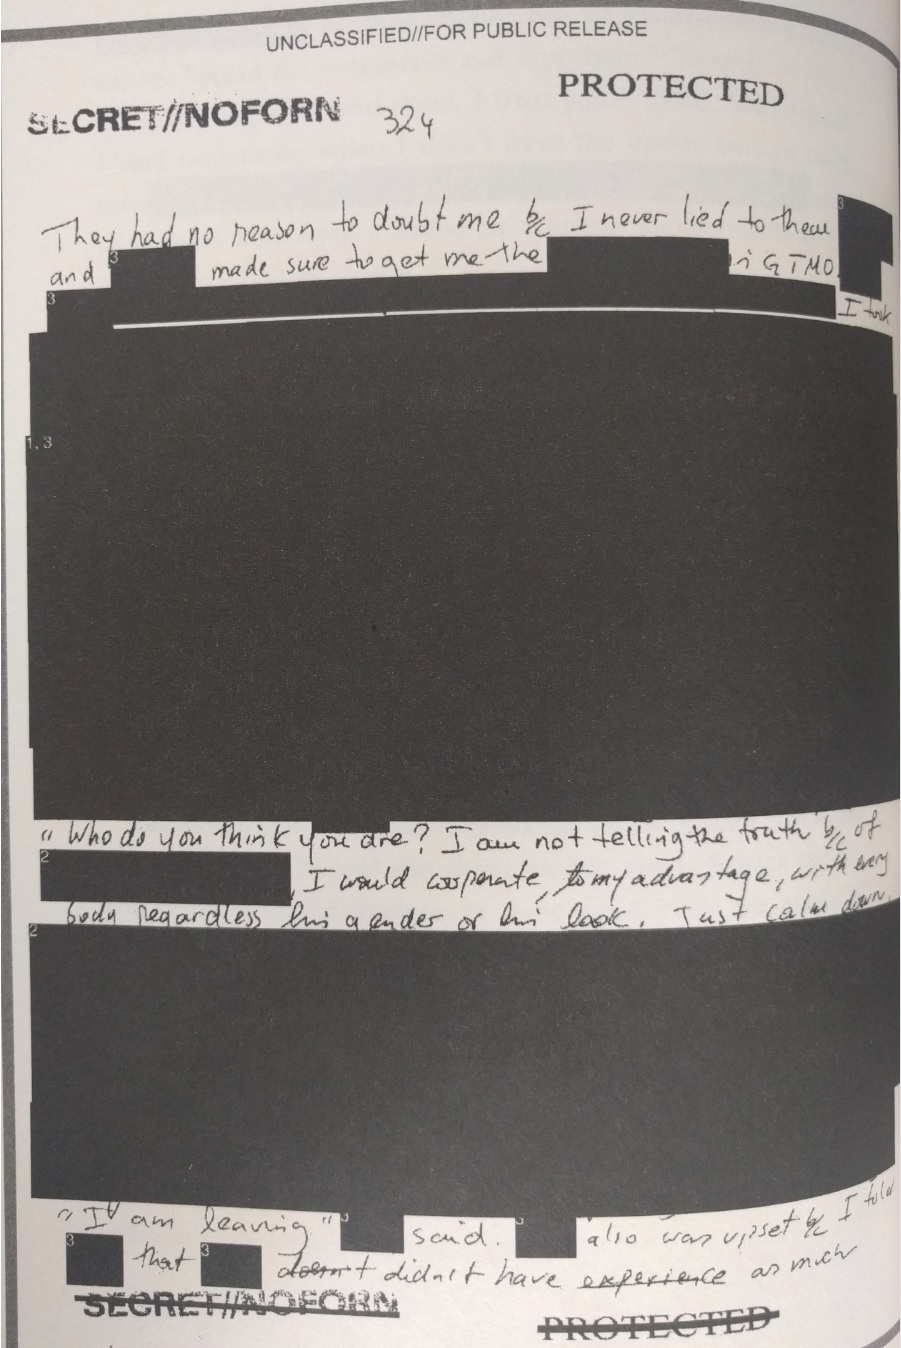 UNCLASSIFIED//FOR PUBLIC RELEASE
PROTECTED
SECRET//NOFORN 324
They had no reason to doubt me b/c I never lied to them 3
and 3 made sure to get me the in GTMO.
3 I took
1, 3
"Who do you think you are? I am not telling the truth b/c of
2 , I would cooperate, to my advantage, with every
body regardless his gender or his look. Just calm down.
2
"I am leaving" 3 said. 3 also was upset b/c I told
3 that 3 doesn't didn't have experience as much
SECRET//NOFORN
PROTECTED